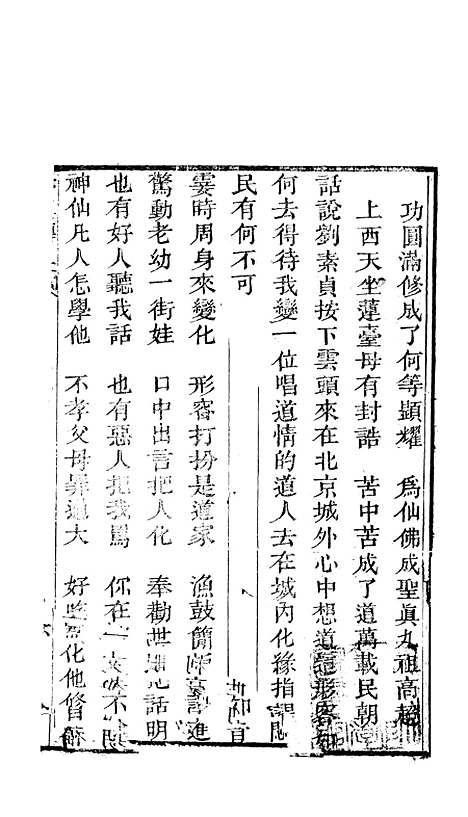 功圓滿修成了何等顯耀 為仙佛成聖眞九祖高超
上西天坐蓮臺母有封誥 苦中苦成了道萬載民朝
話說劉素貞按下雲頭來在北京城外心中想道形容
何去得待我變一位唱道情的道人去在城內化緣指
民有何不可
霎時周身來變化 形容打扮是道家 漁鼓簡 進
驚動老幼一街娃 口中出言把人化 奉勸世 話明
也有好人聽我話 也有惡人把我罵 你在 不
神仙凡人怎學他 不孝父母罪過大 好 化他